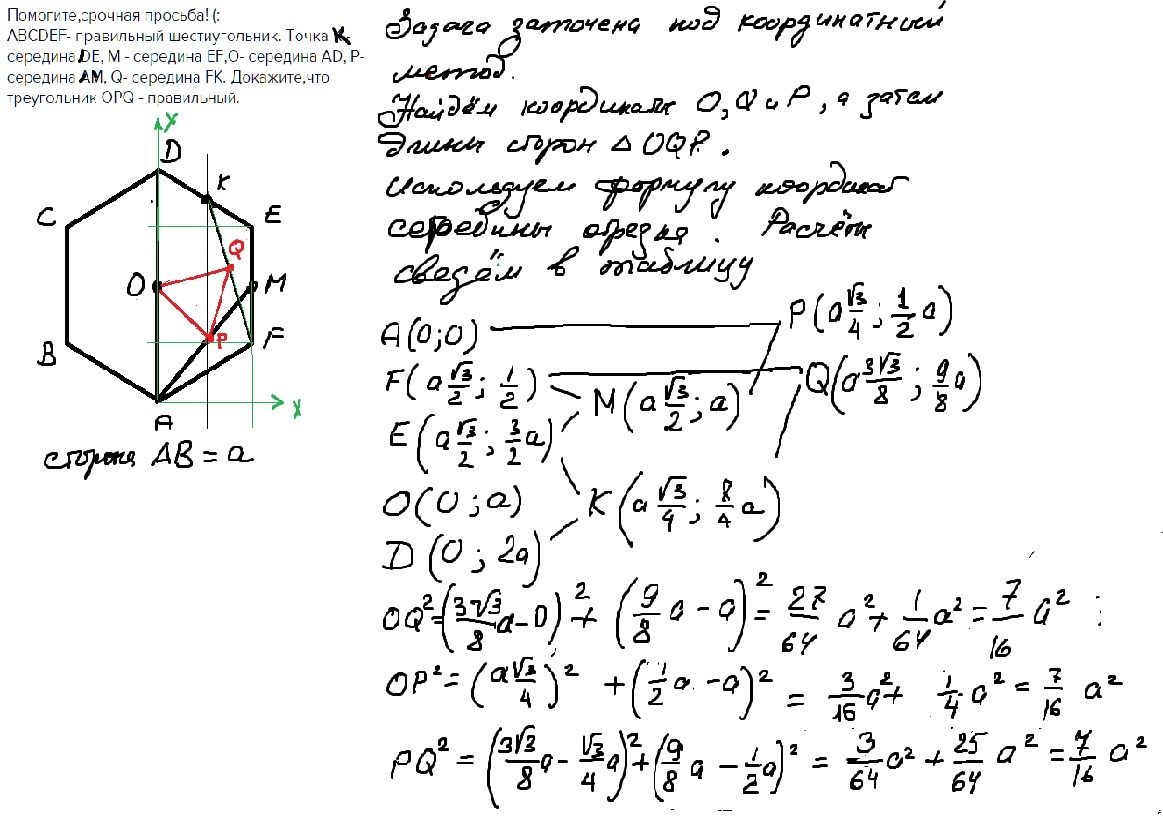 Помогите,срочная просьба! (:
ABCDEF- правильный шестиугольник. Точка К
середина DE, M - середина EF,O- середина AD, P-
середина AM, Q- середина FK. Докажите,что
треугольник OPQ - правильный.
Задача заточена под координатный
метод.
Найдём координаты O, Q и P, а затем
длины сторон Δ OQP.
Используем формулу координат
середины отрезка. Расчёты
сведём в таблицу
X
D
K
C
E
Q
O
M
B
P
F
A
X
сторона AB = a
A(0;0)
P(a√3/4; 1/2 a)
F(a√3/2; 1/2)
M(a√3/2; a)
Q(a 3√3/8; 9/8 a)
E(a√3/2; 3/2 a)
O(0; a)
K(a√3/4; 8/4 a)
D(0; 2a)
OQ²=(3√3/8 a-0)² + (9/8 a - a)² = 27/64 a² + 1/64 a² = 7/16 a²
OP² = (a√3/4)² + (1/2 a - a)² = 3/16 a² + 1/4 a² = 7/16 a²
PQ² = (3√3/8 a - √3/4 a)² + (9/8 a - 1/2 a)² = 3/64 a² + 25/64 a² = 7/16 a²